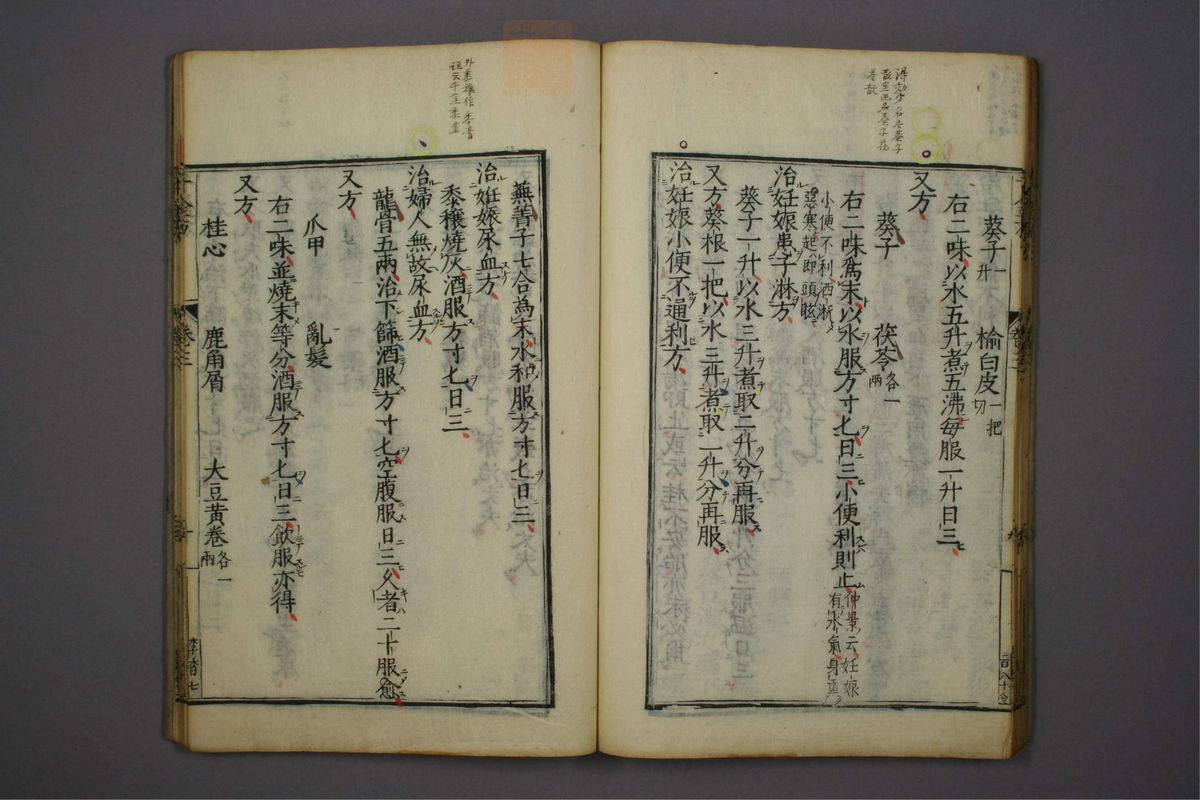 葵子一升 榆白皮一把切
右二味以水五升煮五沸每服一升日三
又方
葵子 茯苓各一兩
右二味爲末以水服方寸匕日三小便利則止仲景云妊娠有水氣身重
小便不利洒淅惡寒起即頭眩
治妊娠患子淋方
葵子一升以水三升煮取二升分再服
又方葵根一把以水三升煮取一升分再服
治妊娠小便不通利方
蕪菁子七合為末水和服方寸匕日三
治妊娠尿血方
黍穰燒灰酒服方寸匕日三
治婦人無故尿血方
龍骨五兩治下篩酒服方寸匕空腹服日三久者二十服愈
又方
爪甲 亂髮
右二味並燒末等分酒服方寸匕日三飲服亦得
又方
桂心 鹿角屑 大豆黃卷各一兩